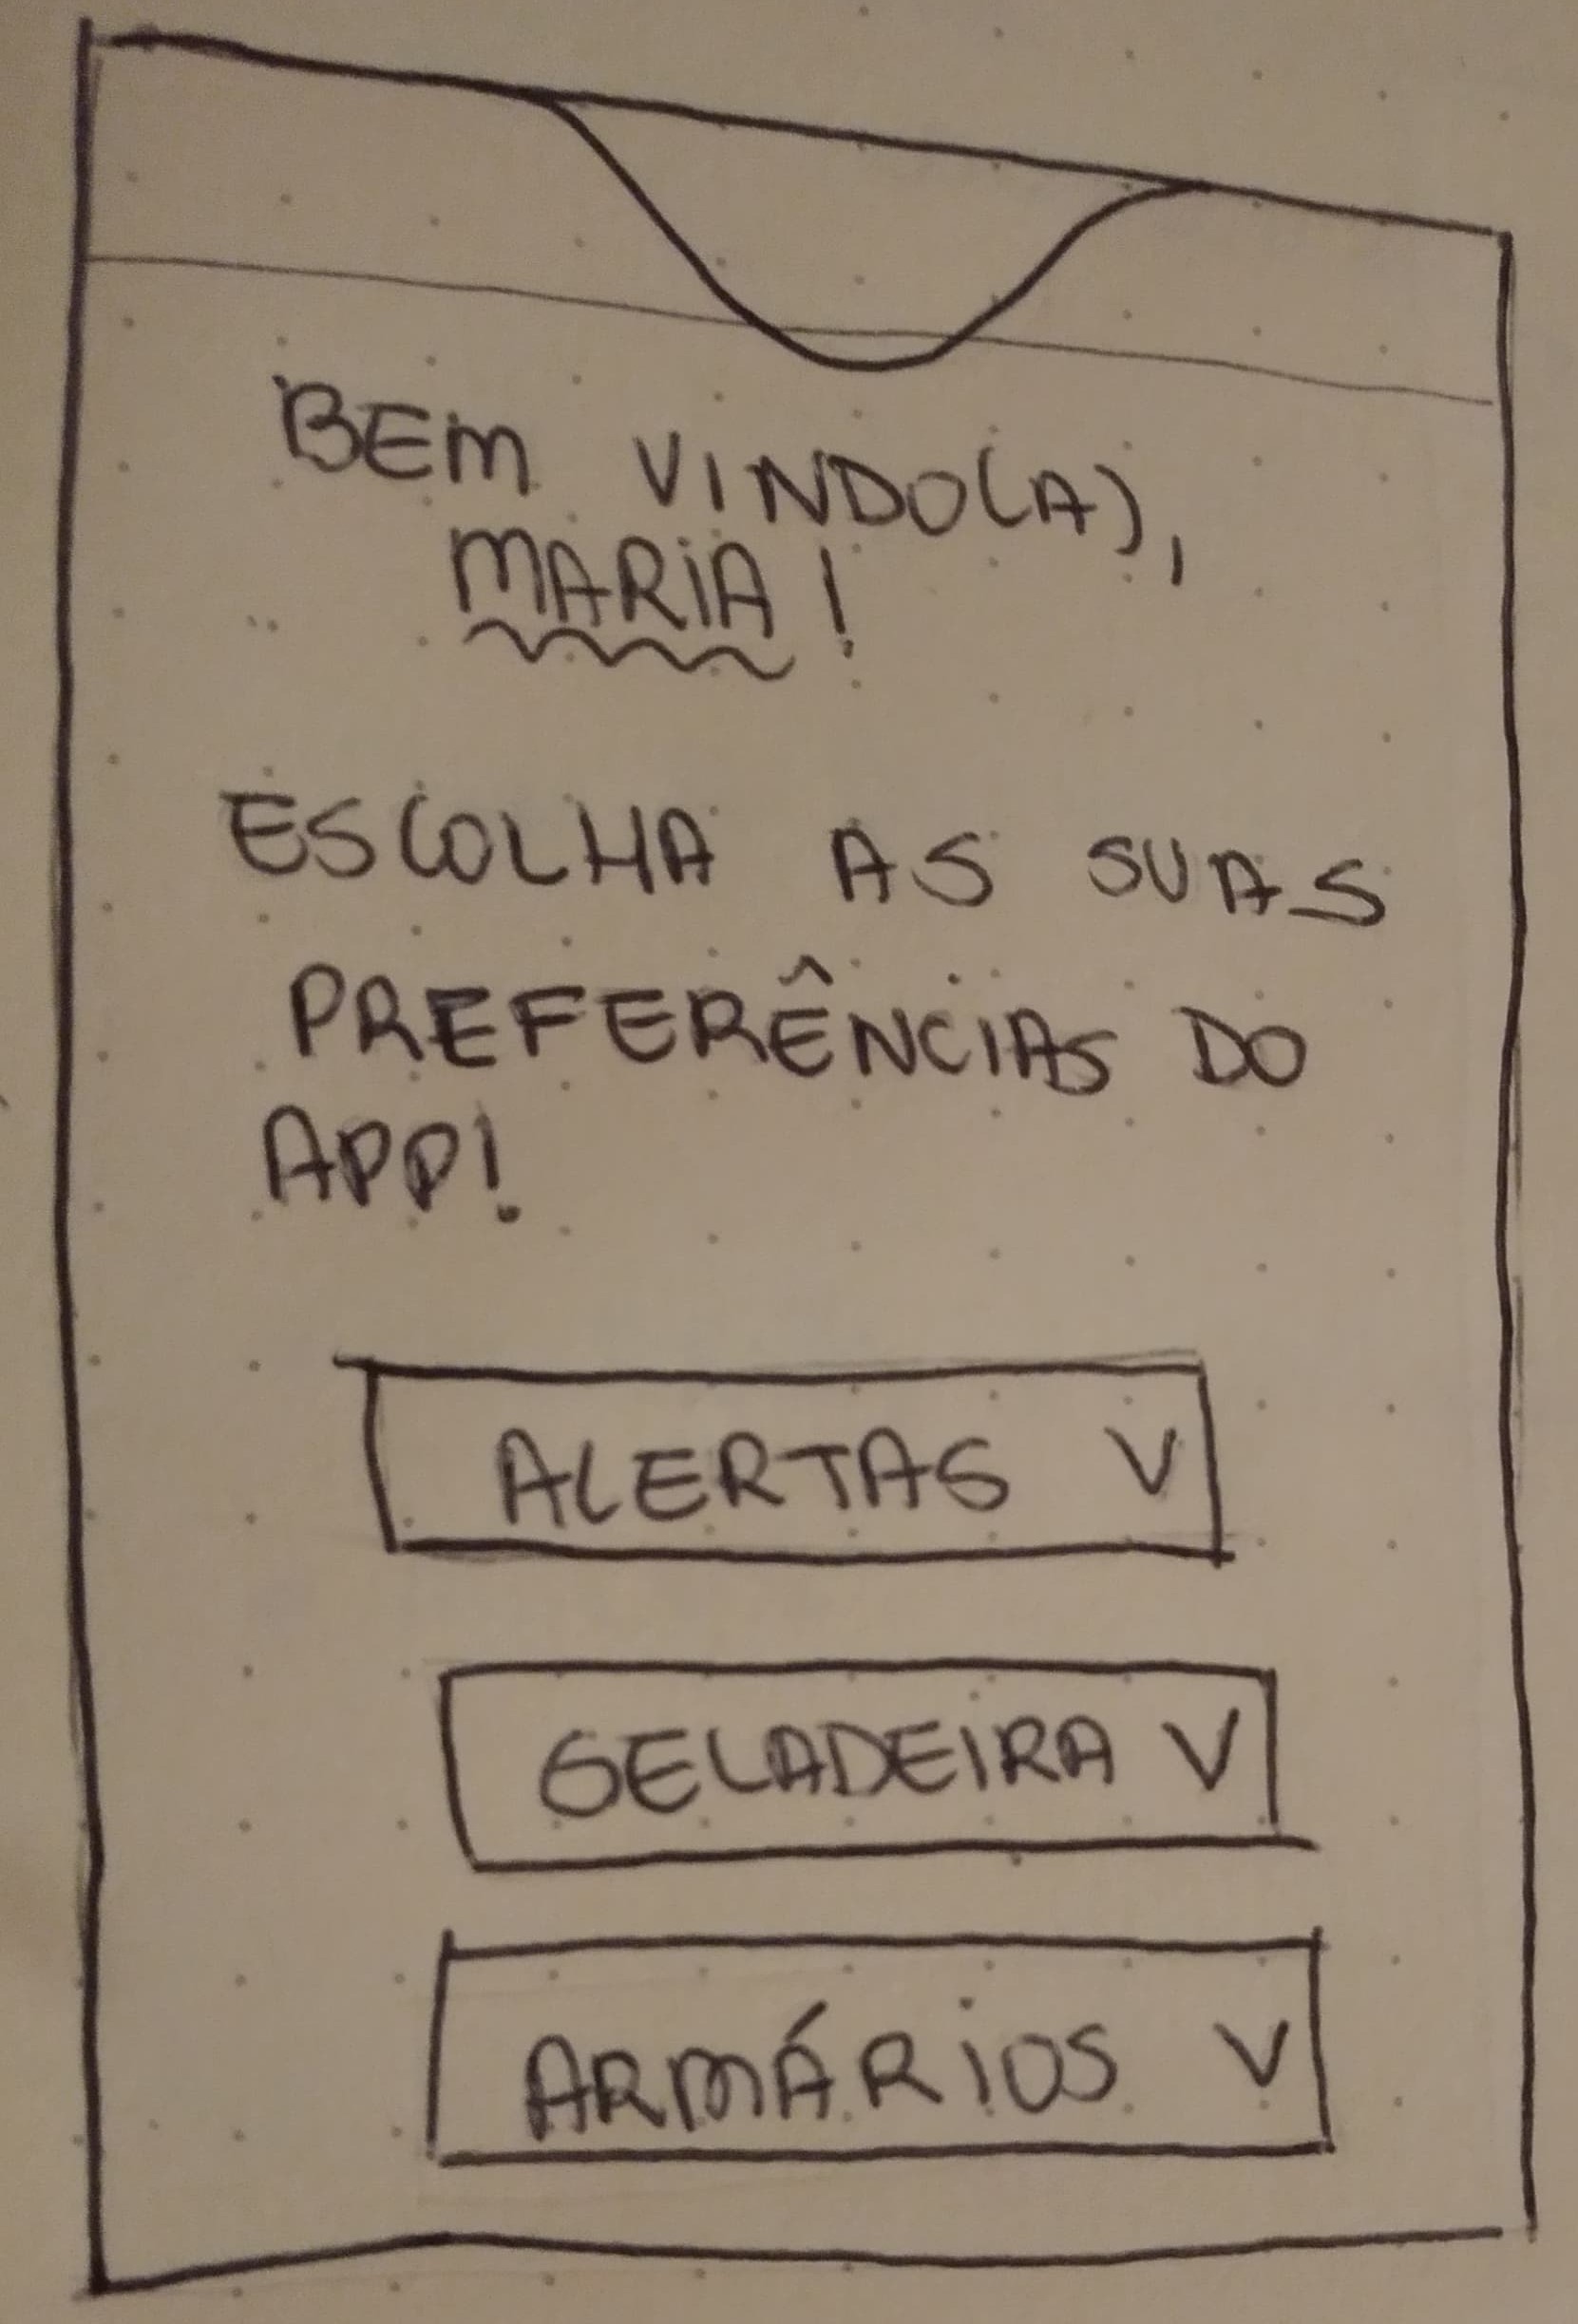 BEM VINDO(A),
MARIA!
ESCOLHA AS SUAS
PREFERÊNCIAS DO
APP!
ALERTAS V
GELADEIRA V
ARMÁRIOS V